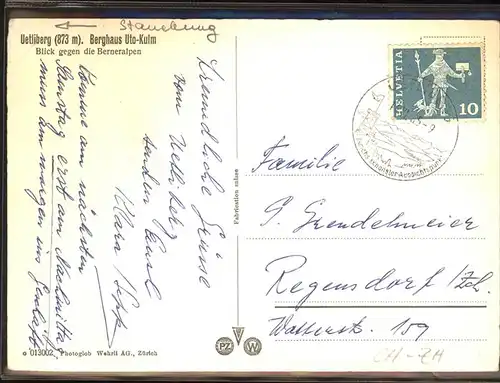 ← Staubung
Uetliberg (873 m). Berghaus Uto-Kulm
Blick gegen die Berneralpen
Freundliche Grüsse
vom Uetliberg
senden Euch
Klara / Sepp
komme am nächsten
Samstag erst am Nachmittag
muss am morgen ins Geschäft
Fabrication suisse
HELVETIA
10
Familie
G. Grendelmeier
Regensdorf / Zch.
Watterstr. 109
CH-ZH
PZ
W
© 013002 Photoglob Wehrli AG., Zürich